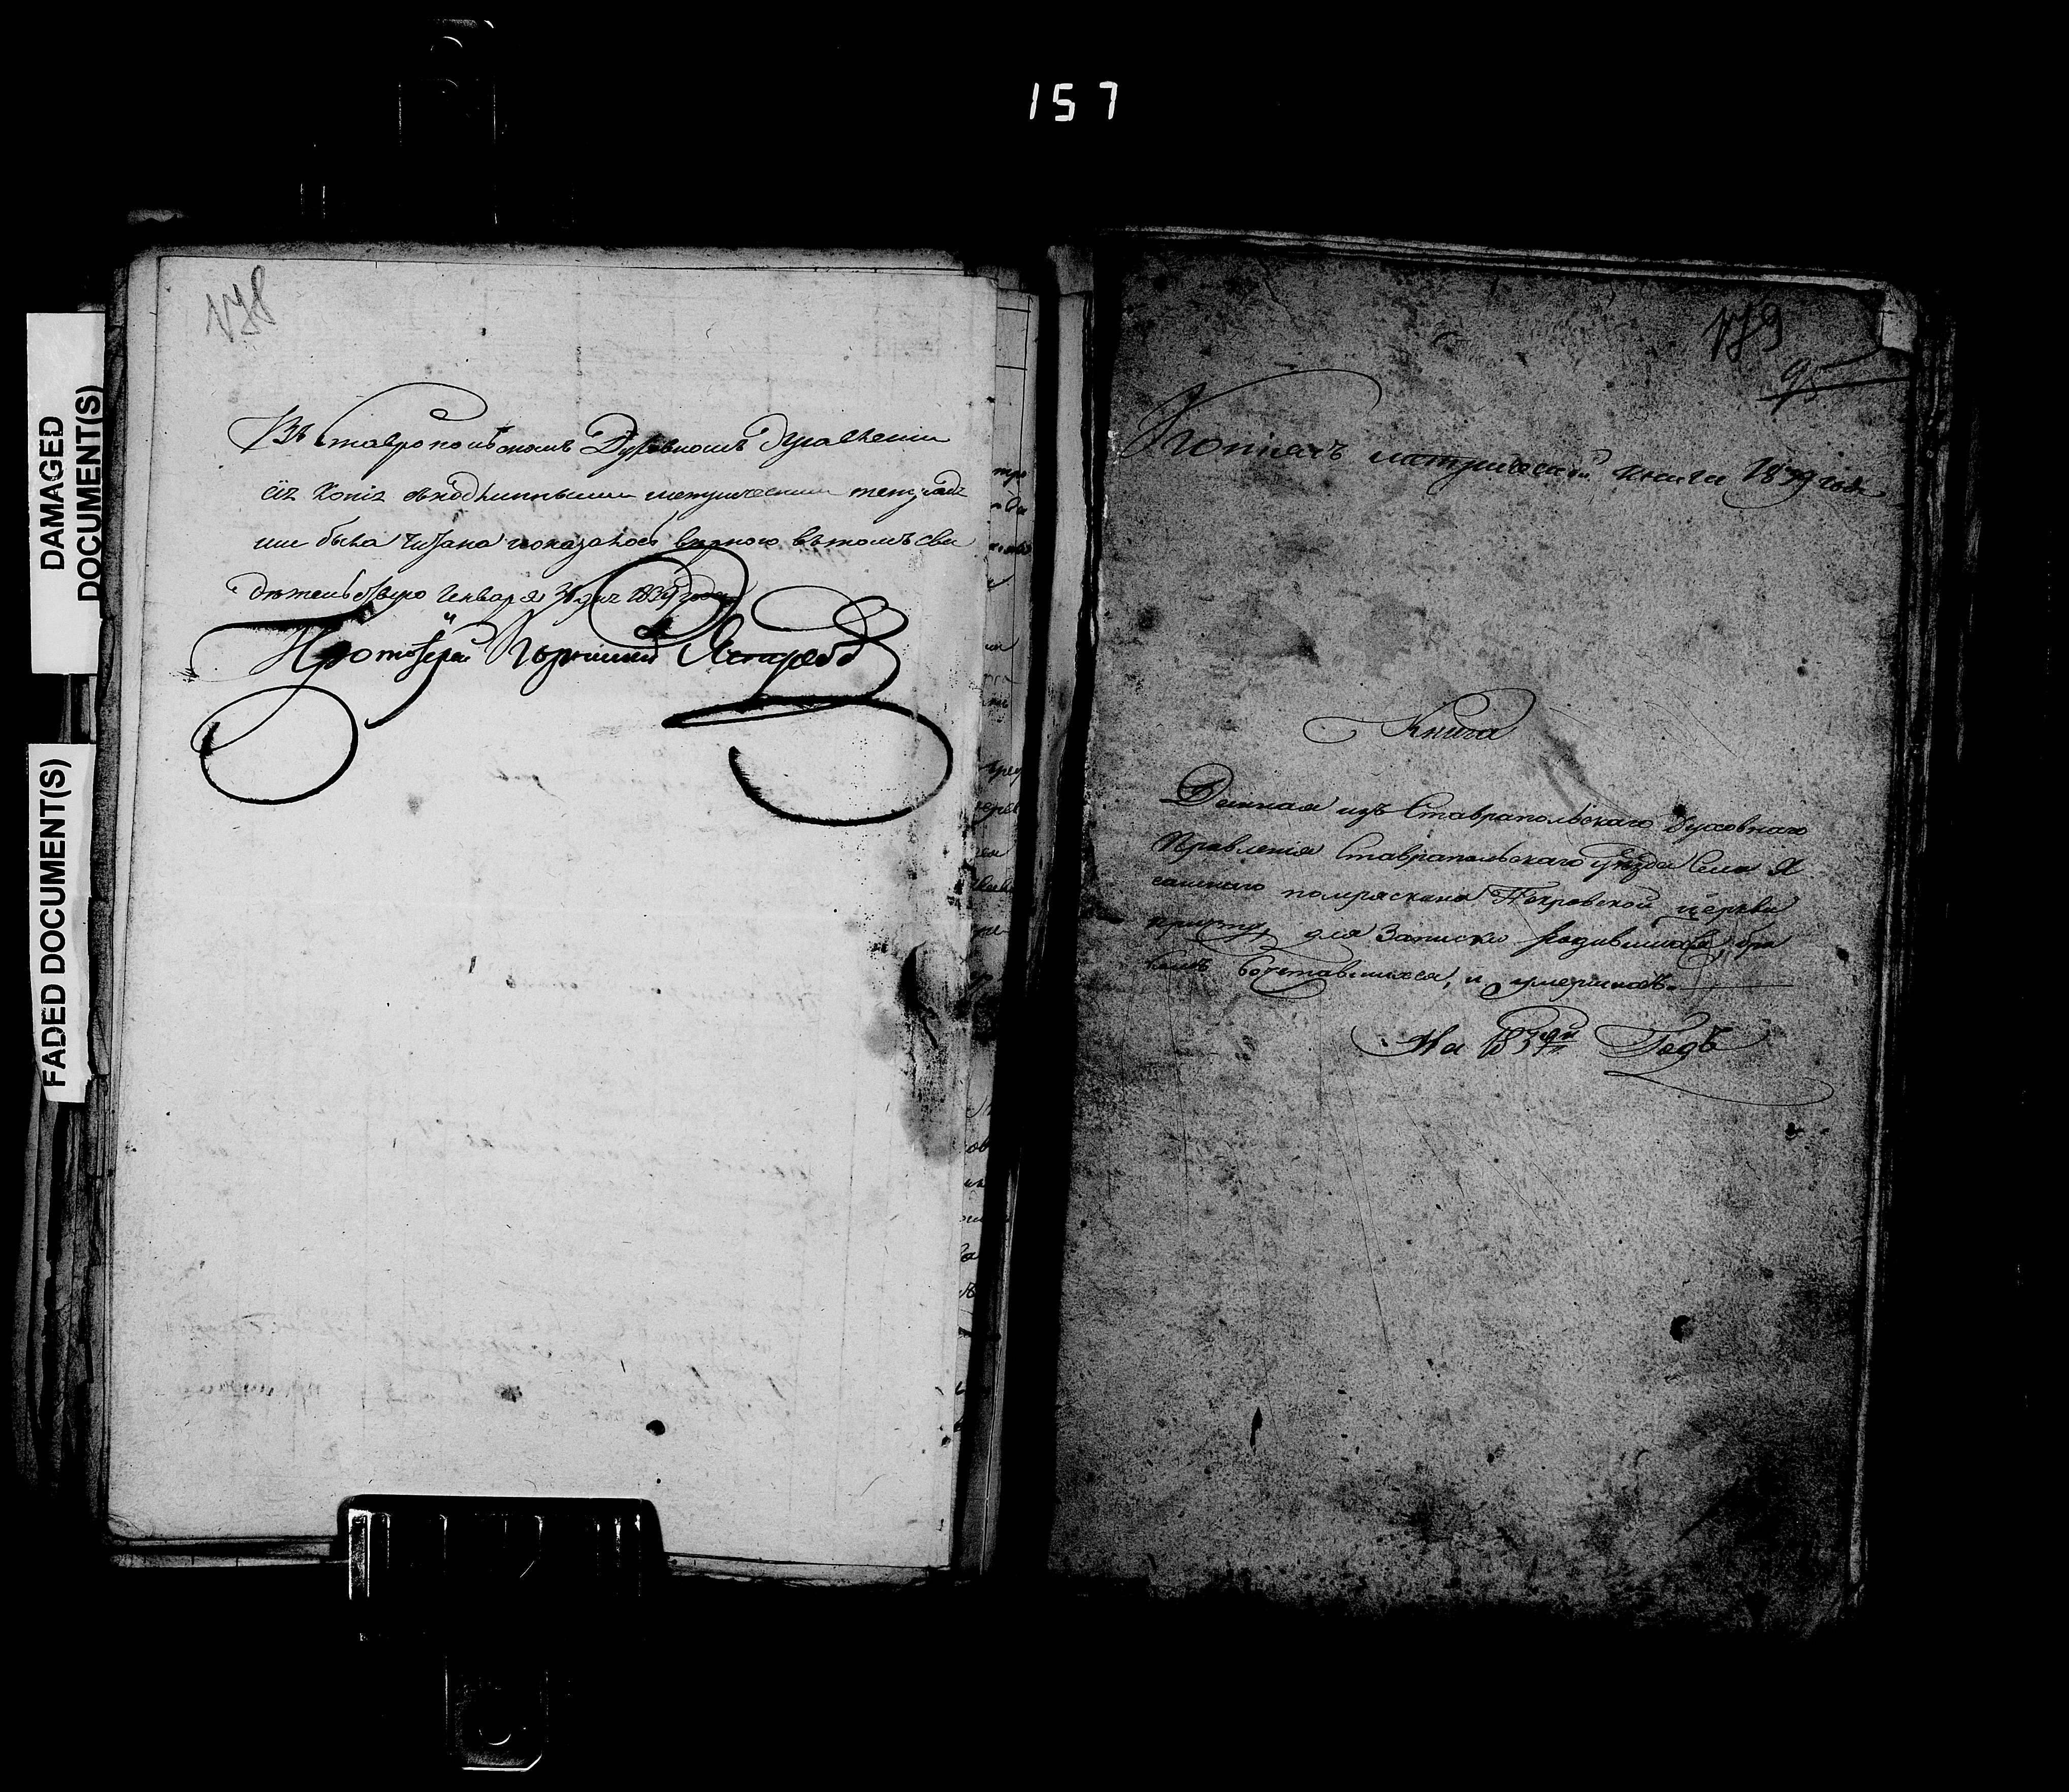 157
DAMAGED
DOCUMENT(S)
FADED DOCUMENT(S)
178
Въ Ставропольскомъ Духовномъ
сія копія съ подлинными метрическими тетрадя
ми была читана и оказалось верною въ томъ сви
дѣтельствую Генваря 1839 года
Протоіерей Ястребов
179
95
Копiя съ метрической книги 1839 года
Книга
Данная изъ Ставрапольскаго Духовнаго
Правленія Ставрапольскаго уѣзда Села Я
сашнаго помряскина Покровской церкви
причту, для Записки родившихся, бра
комъ Сочетавшихся, и умершихъ.
На 1839й Годъ